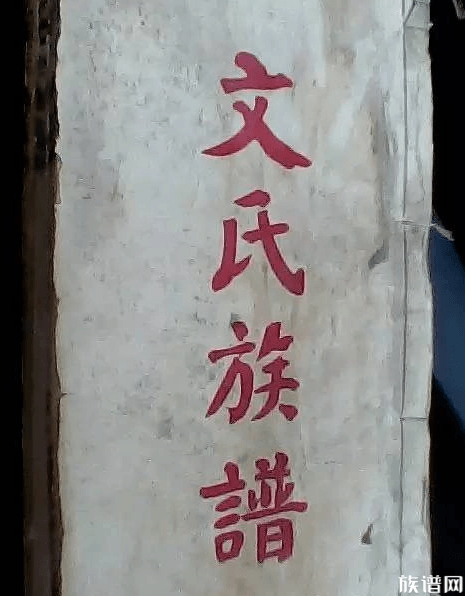 文氏族譜
族谱网